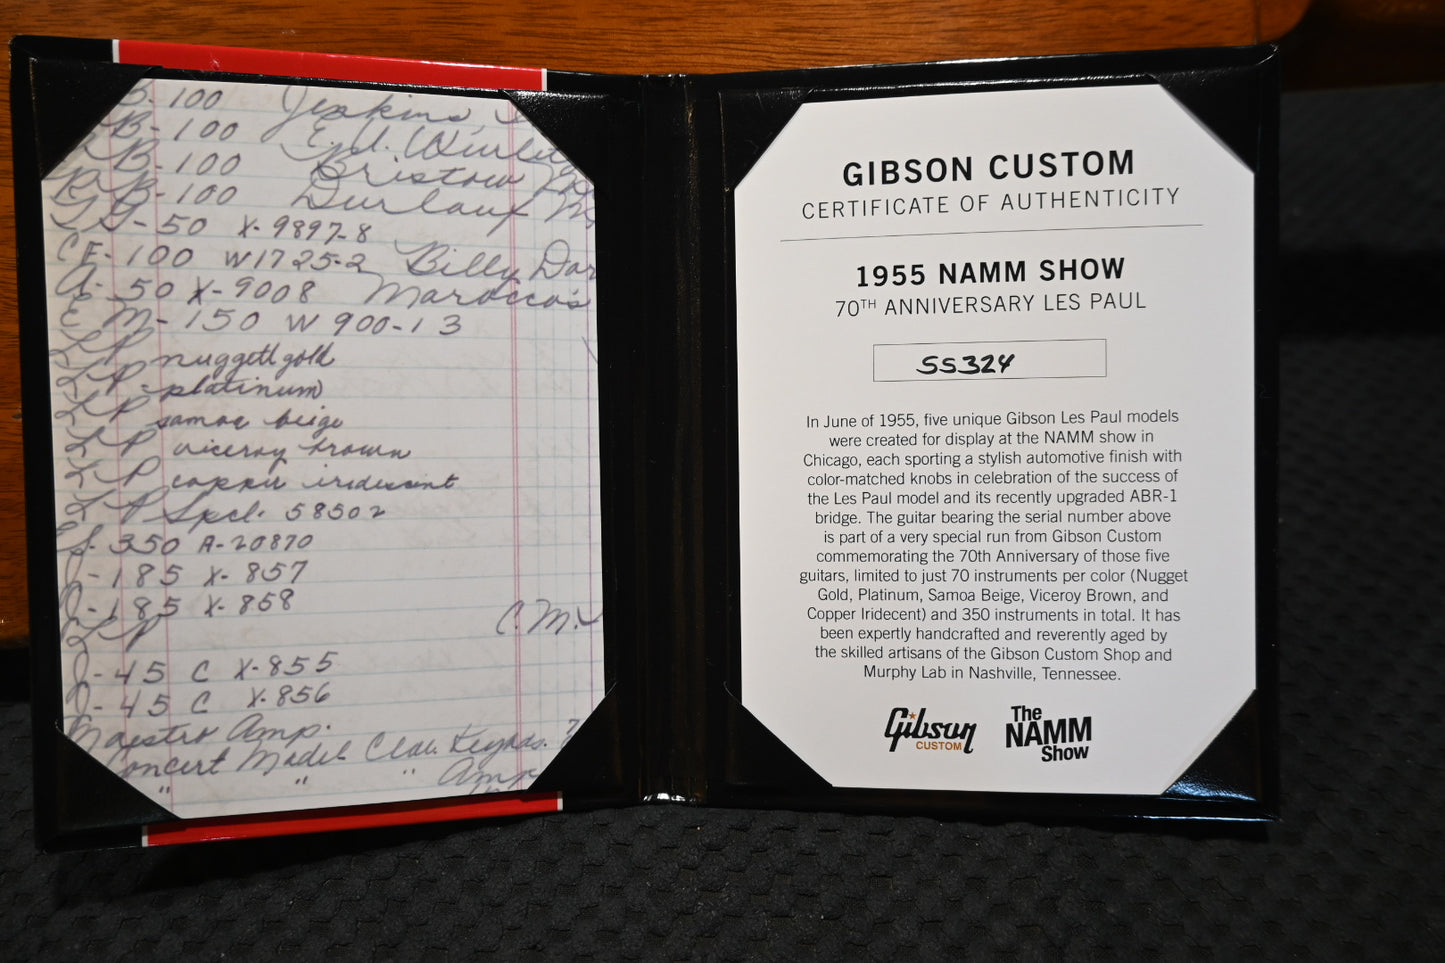 B-100 Jenkins
B-100 E. U. Wurlit
B-100 Bristow
B-100
-50 X-9897-8
CE-100 W1725-2 Billy Dar
A-50 X-9008 Marocco's
E M-150 W 900-13
LP nuggett gold
LP-platinum
LP samoa beige
LP viceroy brown
LP copper iridescent
LP Spcl. 58502
ES-350 A-20870
J-185 X-857
J-185 X-858
LP C.M.
J-45 C X-855
J-45 C X-856
Maestro Amp.
Concert Model Clav. Keybds.
" " " Amp
GIBSON CUSTOM
CERTIFICATE OF AUTHENTICITY
1955 NAMM SHOW
70TH ANNIVERSARY LES PAUL
SS324
In June of 1955, five unique Gibson Les Paul models
were created for display at the NAMM show in
Chicago, each sporting a stylish automotive finish with
color-matched knobs in celebration of the success of
the Les Paul model and its recently upgraded ABR-1
bridge. The guitar bearing the serial number above
is part of a very special run from Gibson Custom
commemorating the 70th Anniversary of those five
guitars, limited to just 70 instruments per color (Nugget
Gold, Platinum, Samoa Beige, Viceroy Brown, and
Copper Iridecent) and 350 instruments in total. It has
been expertly handcrafted and reverently aged by
the skilled artisans of the Gibson Custom Shop and
Murphy Lab in Nashville, Tennessee.
Gibson
CUSTOM
The
NAMM
Show